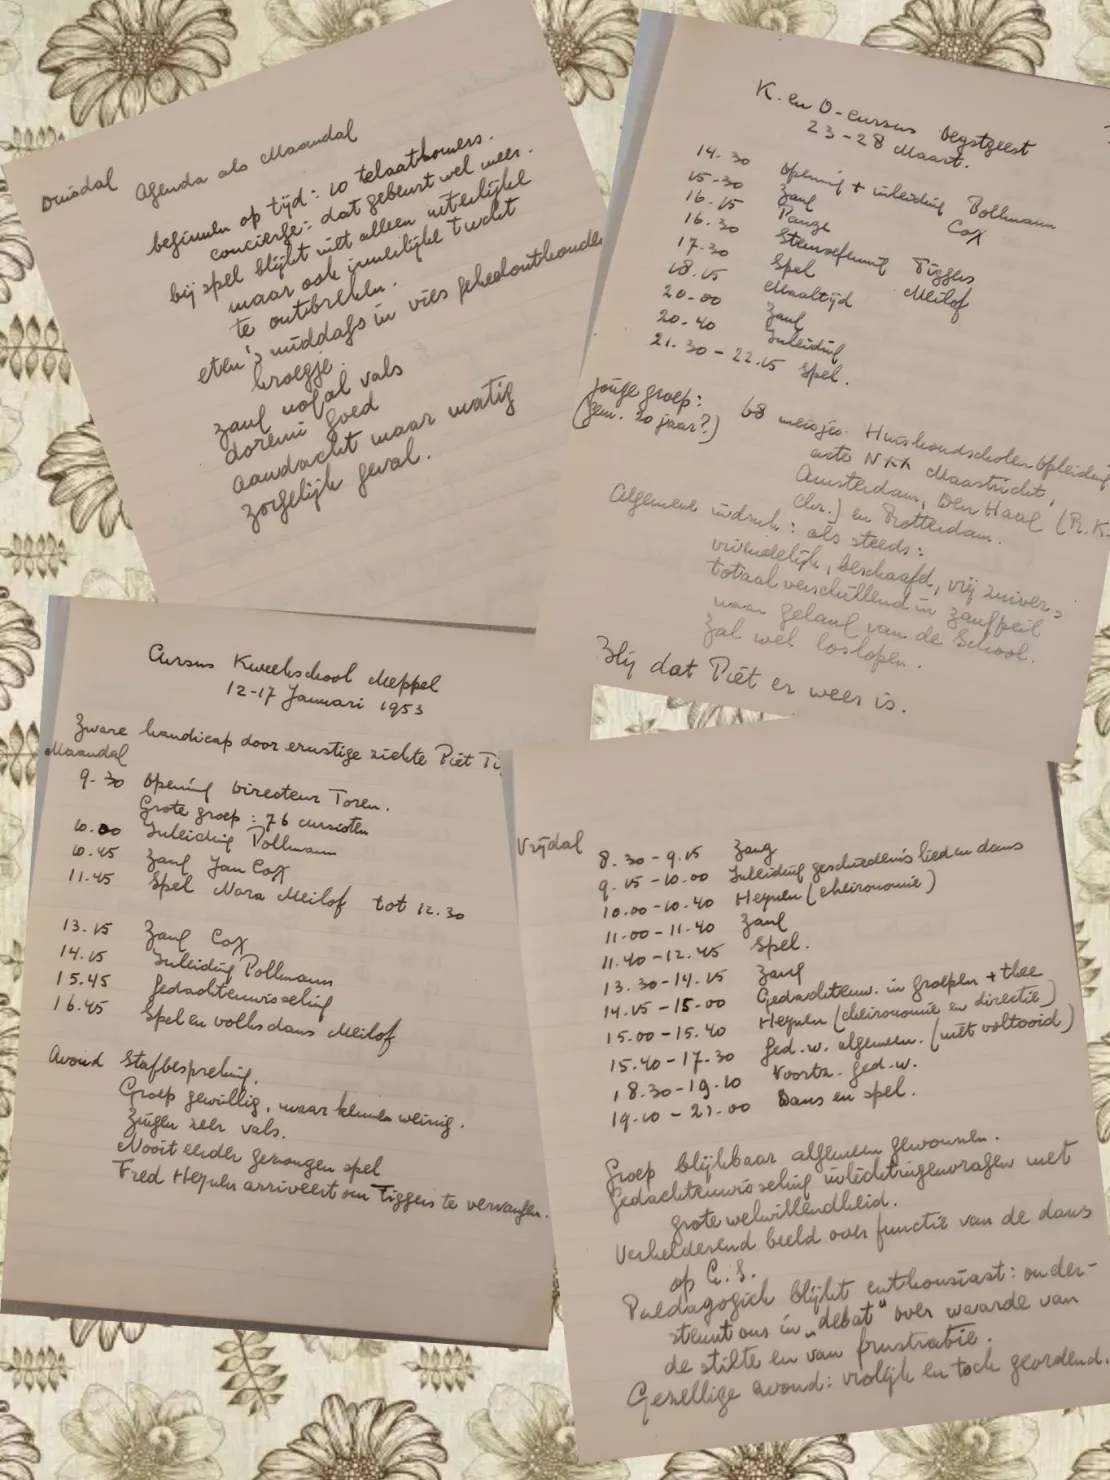 Dinsdag Agenda als Maandag
beginnen op tijd: 10 telaatkomers.
concierge: dat gebeurt wel meer.
bij spel blijkt niet alleen uiterlijke
maar ook innerlijke tucht
te ontbreken.
eten 's middags in vies geheelonthouders
kroegje.
zang nogal vals
doremi goed
aandacht maar matig
zorgelijk geval.
K. en O-cursus Oegstgeest
23-28 Maart.
14.30 Opening + inleiding Pollmann
15-30 Zang Cox
16.15 Pauze
16.30 Stemvorming Tiggers
17.30 Spel Meilof
18.15 Maaltijd
20-00 Zang
20-40 Inleiding
21.30-22.15 Spel.
jonge groep: 68 meisjes Huishoudscholen Opleiding
(gem. 20 jaar?) acte Maastricht,
Amsterdam, Den Haag (R.K.
Chr.) en Rotterdam.
Algemene indruk: als steeds:
vriendelijk, beschaafd, vrij zuiver =
totaal verschillend in zangpeil
naar gelang van de School.
Zal wel loslopen.
Blij dat Piet er weer is.
Cursus Kweekschool Meppel
12-17 Januari 1953
Zware handicap door ernstige ziekte Piet Ti
Maandag
9-30 Opening Directeur Toren.
Grote groep: 76 cursisten
10.00 Inleiding Pollmann
10.45 Zang Jan Cox
11.45 Spel Nora Meilof tot 12.30
13.15 Zang Cox
14.15 Inleiding Pollmann
15.45 Gedachtenwisseling
16.45 Spel en volksdans Meilof
Avond Stafbespreking.
Groep gewillig, maar kennen weinig.
Zingen zeer vals.
Nooit eerder gezongen spel
Fred Heynen arriveert om Tiggers te vervangen.
Vrijdag
8.30-9.15 Zang
9.15-10.00 Inleiding geschiedenis lied en dans
10.00-10.40 Heynen (cheironomie)
11.00-11.40 Zang
11.40-12.45 Spel.
13.30-14.15 Zang
14.15-15.00 Gedachtenw. in groepen + thee
15.00-15.40 Heynen (cheironomie en directie)
15.40-17.30 Ged.w. algemeen. (niet voltooid)
18.30-19.10 Voortz. ged.w.
19.10-21.00 Dans en spel.
Groep blijkbaar algemeen gewonnen.
Gedachtenwisseling inlichtingenvragen met
grote welwillendheid.
Verhelderend beeld over functie van de dans
op G.S.
Paedagogiek blijkt enthousiast: onder-
steunt ons in „debat" over waarde van
de stilte en van frustratie.
Gezellige avond: vrolijk en toch geordend.